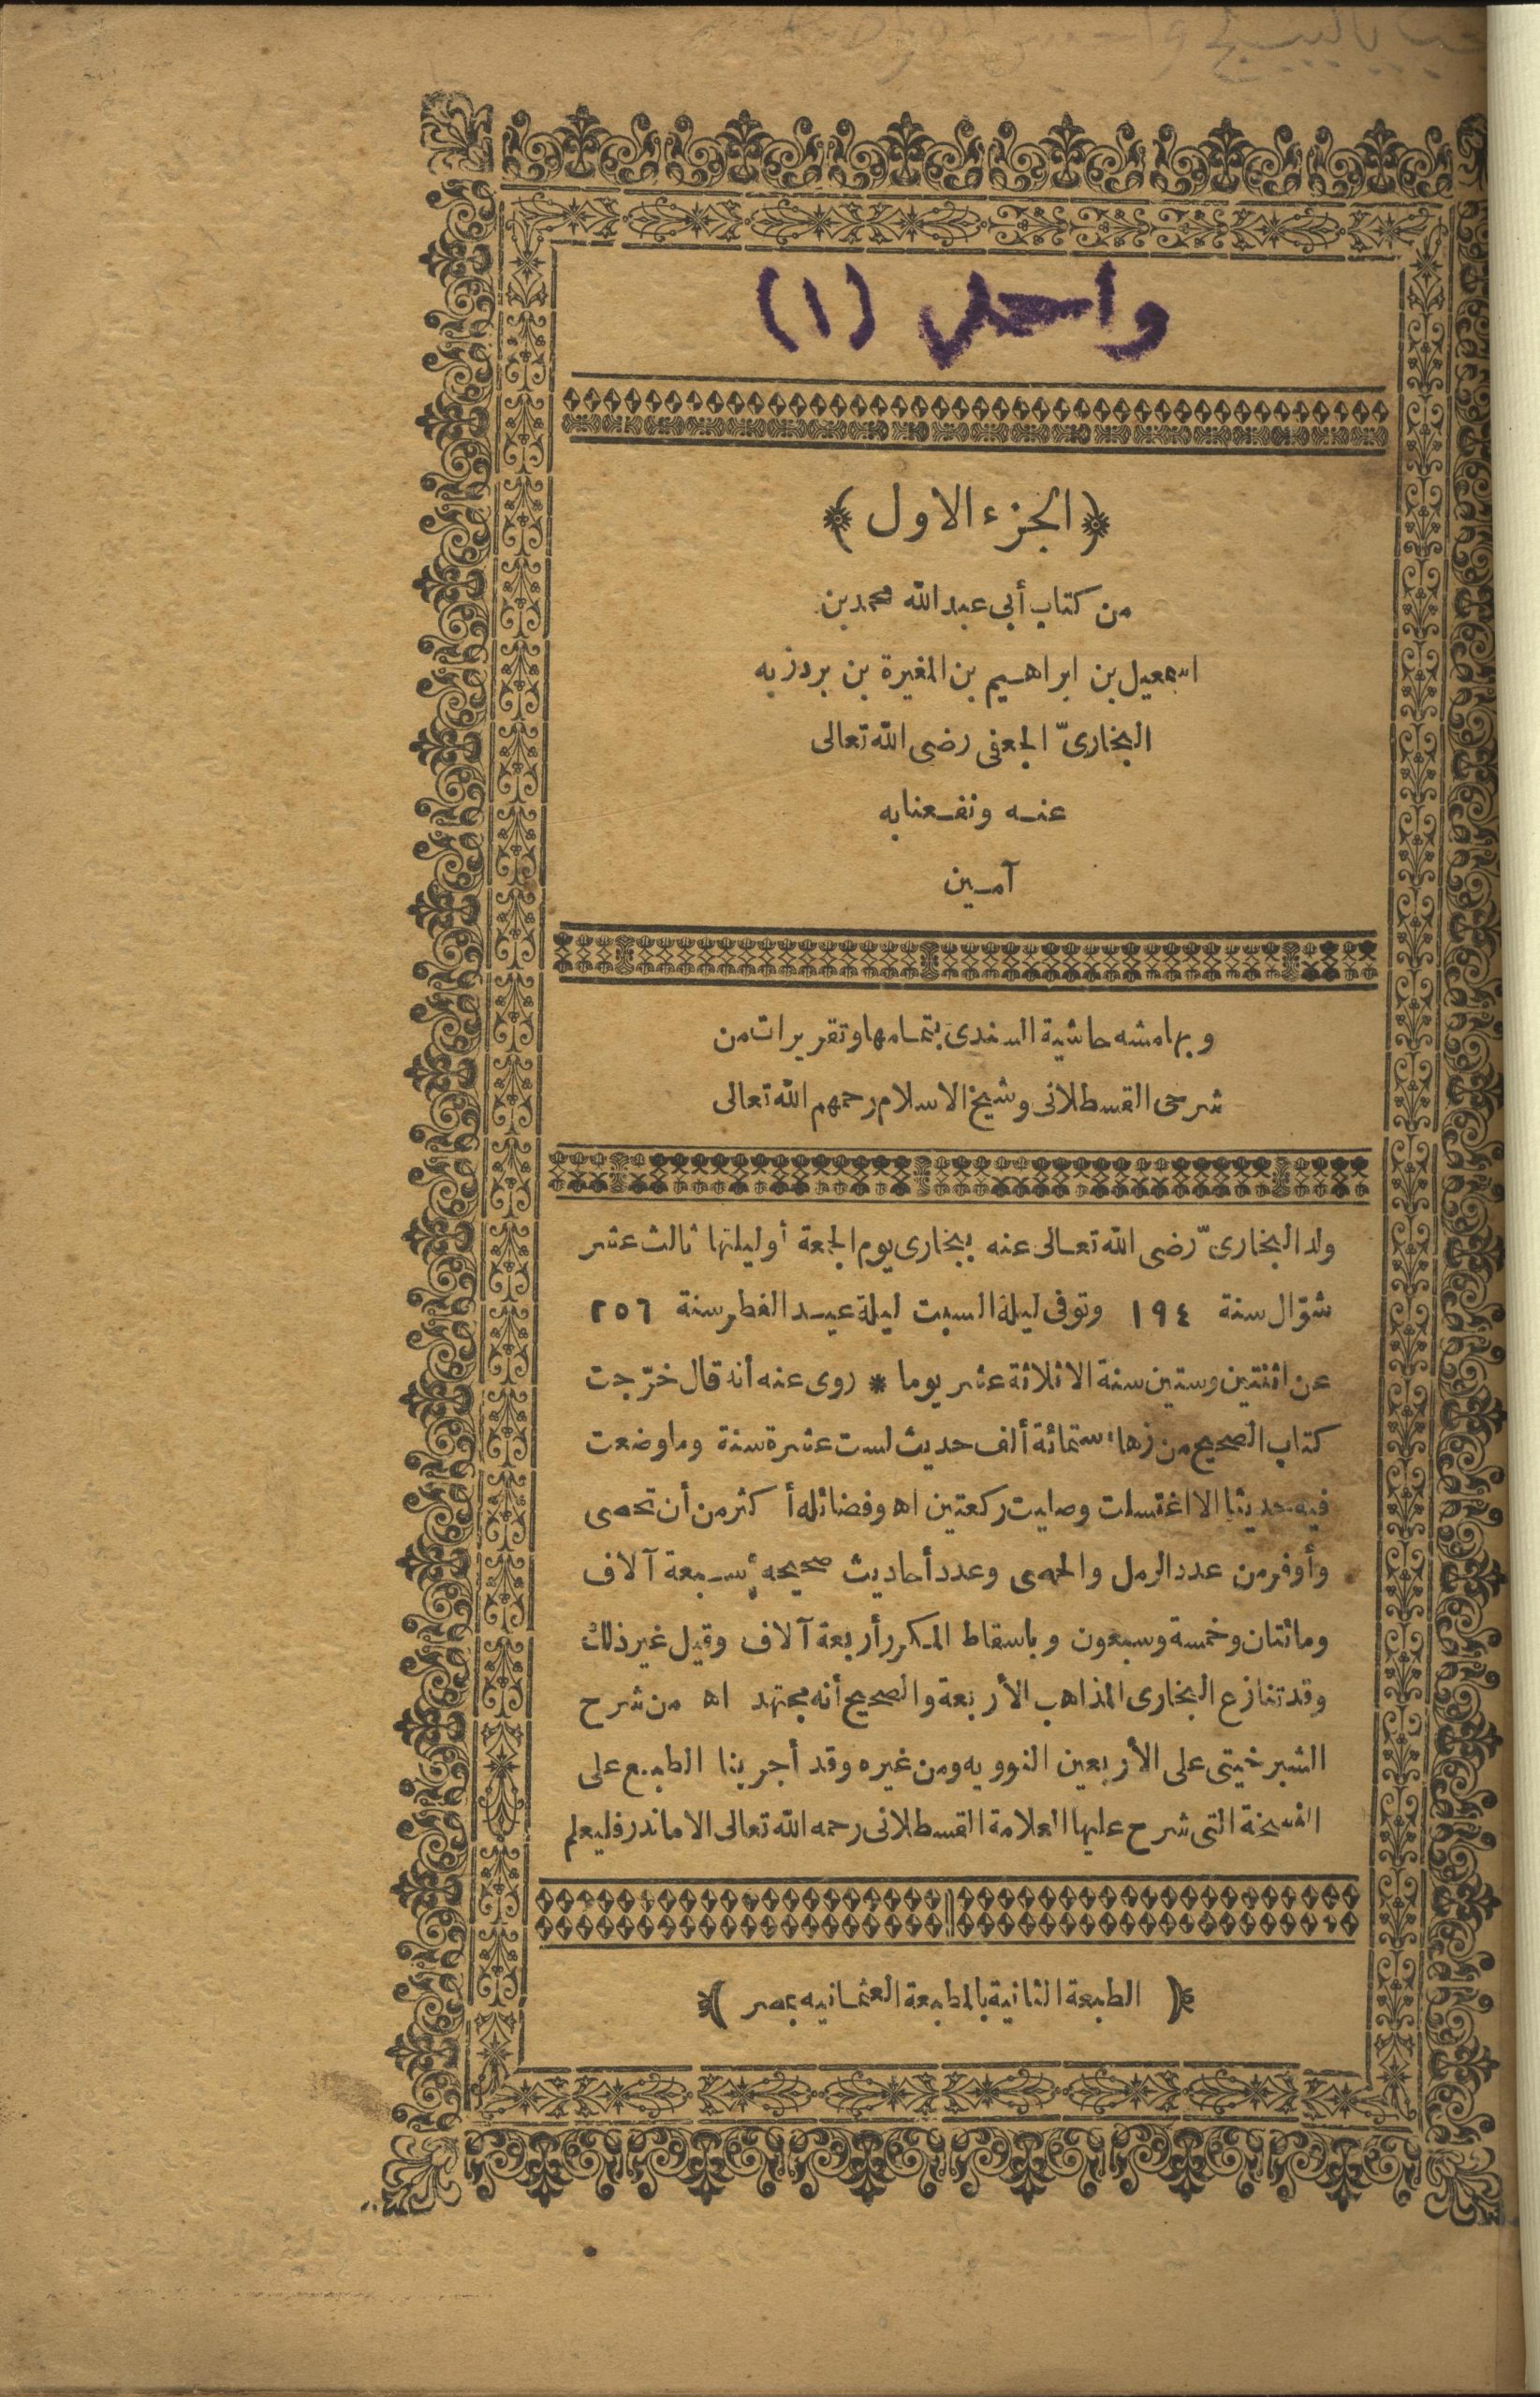 واحد (١)
﴿الجزء الاول﴾
من كتاب أبى عبد الله محمد بن
اسمعيل بن ابراهيم بن المغيرة بن بردزبه
البخارىّ الجعفى رضى الله تعالى
عنه ونفعنا به
آمين
وبهامشه حاشية السندى بتمامها وتقريرات من
شرحى القسطلانى وشيخ الاسلام رحمهم الله تعالى
ولد البخارىّ رضى الله تعالى عنه ببخارى يوم الجمعة أو ليلتها ثالث عشر
شوّال سنة ١٩٤ وتوفى ليلة السبت ليلة عيد الفطر سنة ٢٥٦
عن اثنتين وستين سنة الا ثلاثة عشر يوما * روى عنه أنه قال خرّجت
كتاب الصحيح من زهاء ستمائة ألف حديث لست عشرة سنة وما وضعت
فيه حديثا الا اغتسلت وصليت ركعتين اه وفضائله أكثر من أن تحصى
وأوفر من عدد الرمل والحصى وعدد أحاديث صحيحه سبعة آلاف
ومائتان وخمسة وسبعون وباسقاط المكرر أربعة آلاف وقيل غير ذلك
وقد تنازع البخارى المذاهب الأربعة والصحيح أنه مجتهد اه من شرح
الشبرخيتى على الأربعين النوويه ومن غيره وقد أجرينا الطبع على
النسخة التى شرح عليها العلامة القسطلانى رحمه الله تعالى الا ما ندر فليعلم
﴿ الطبعة الثانية بالمطبعة العثمانيه بمصر ﴾